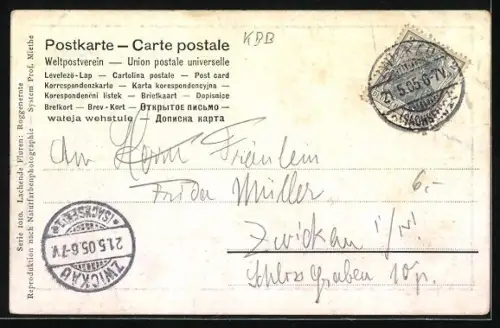 KBB
Postkarte – Carte postale
Weltpostverein — Union postale universelle
Levelező-Lap — Cartolina postale — Post card
Korrespondenzkarte — Karta korespondencyjna
Korespondenční lístek — Briefkaart — Dopisnice
Brefkort — Brev-Kort — Открытое письмо —
wateja wehstule — Дописна карта
21.5.05.6-7V.
(SACHSEN)
An Herrn Fräulein
Frida Müller
6,-
Zwickau i/S!
Schlossgraben 10 p.
ZWICKAU
21.5.05.6-7V.
(SACHSEN)
Serie 1010. Lachende Fluren: Roggenernte
Reproduktion nach Naturfarbenphotographie — System Prof. Miethe